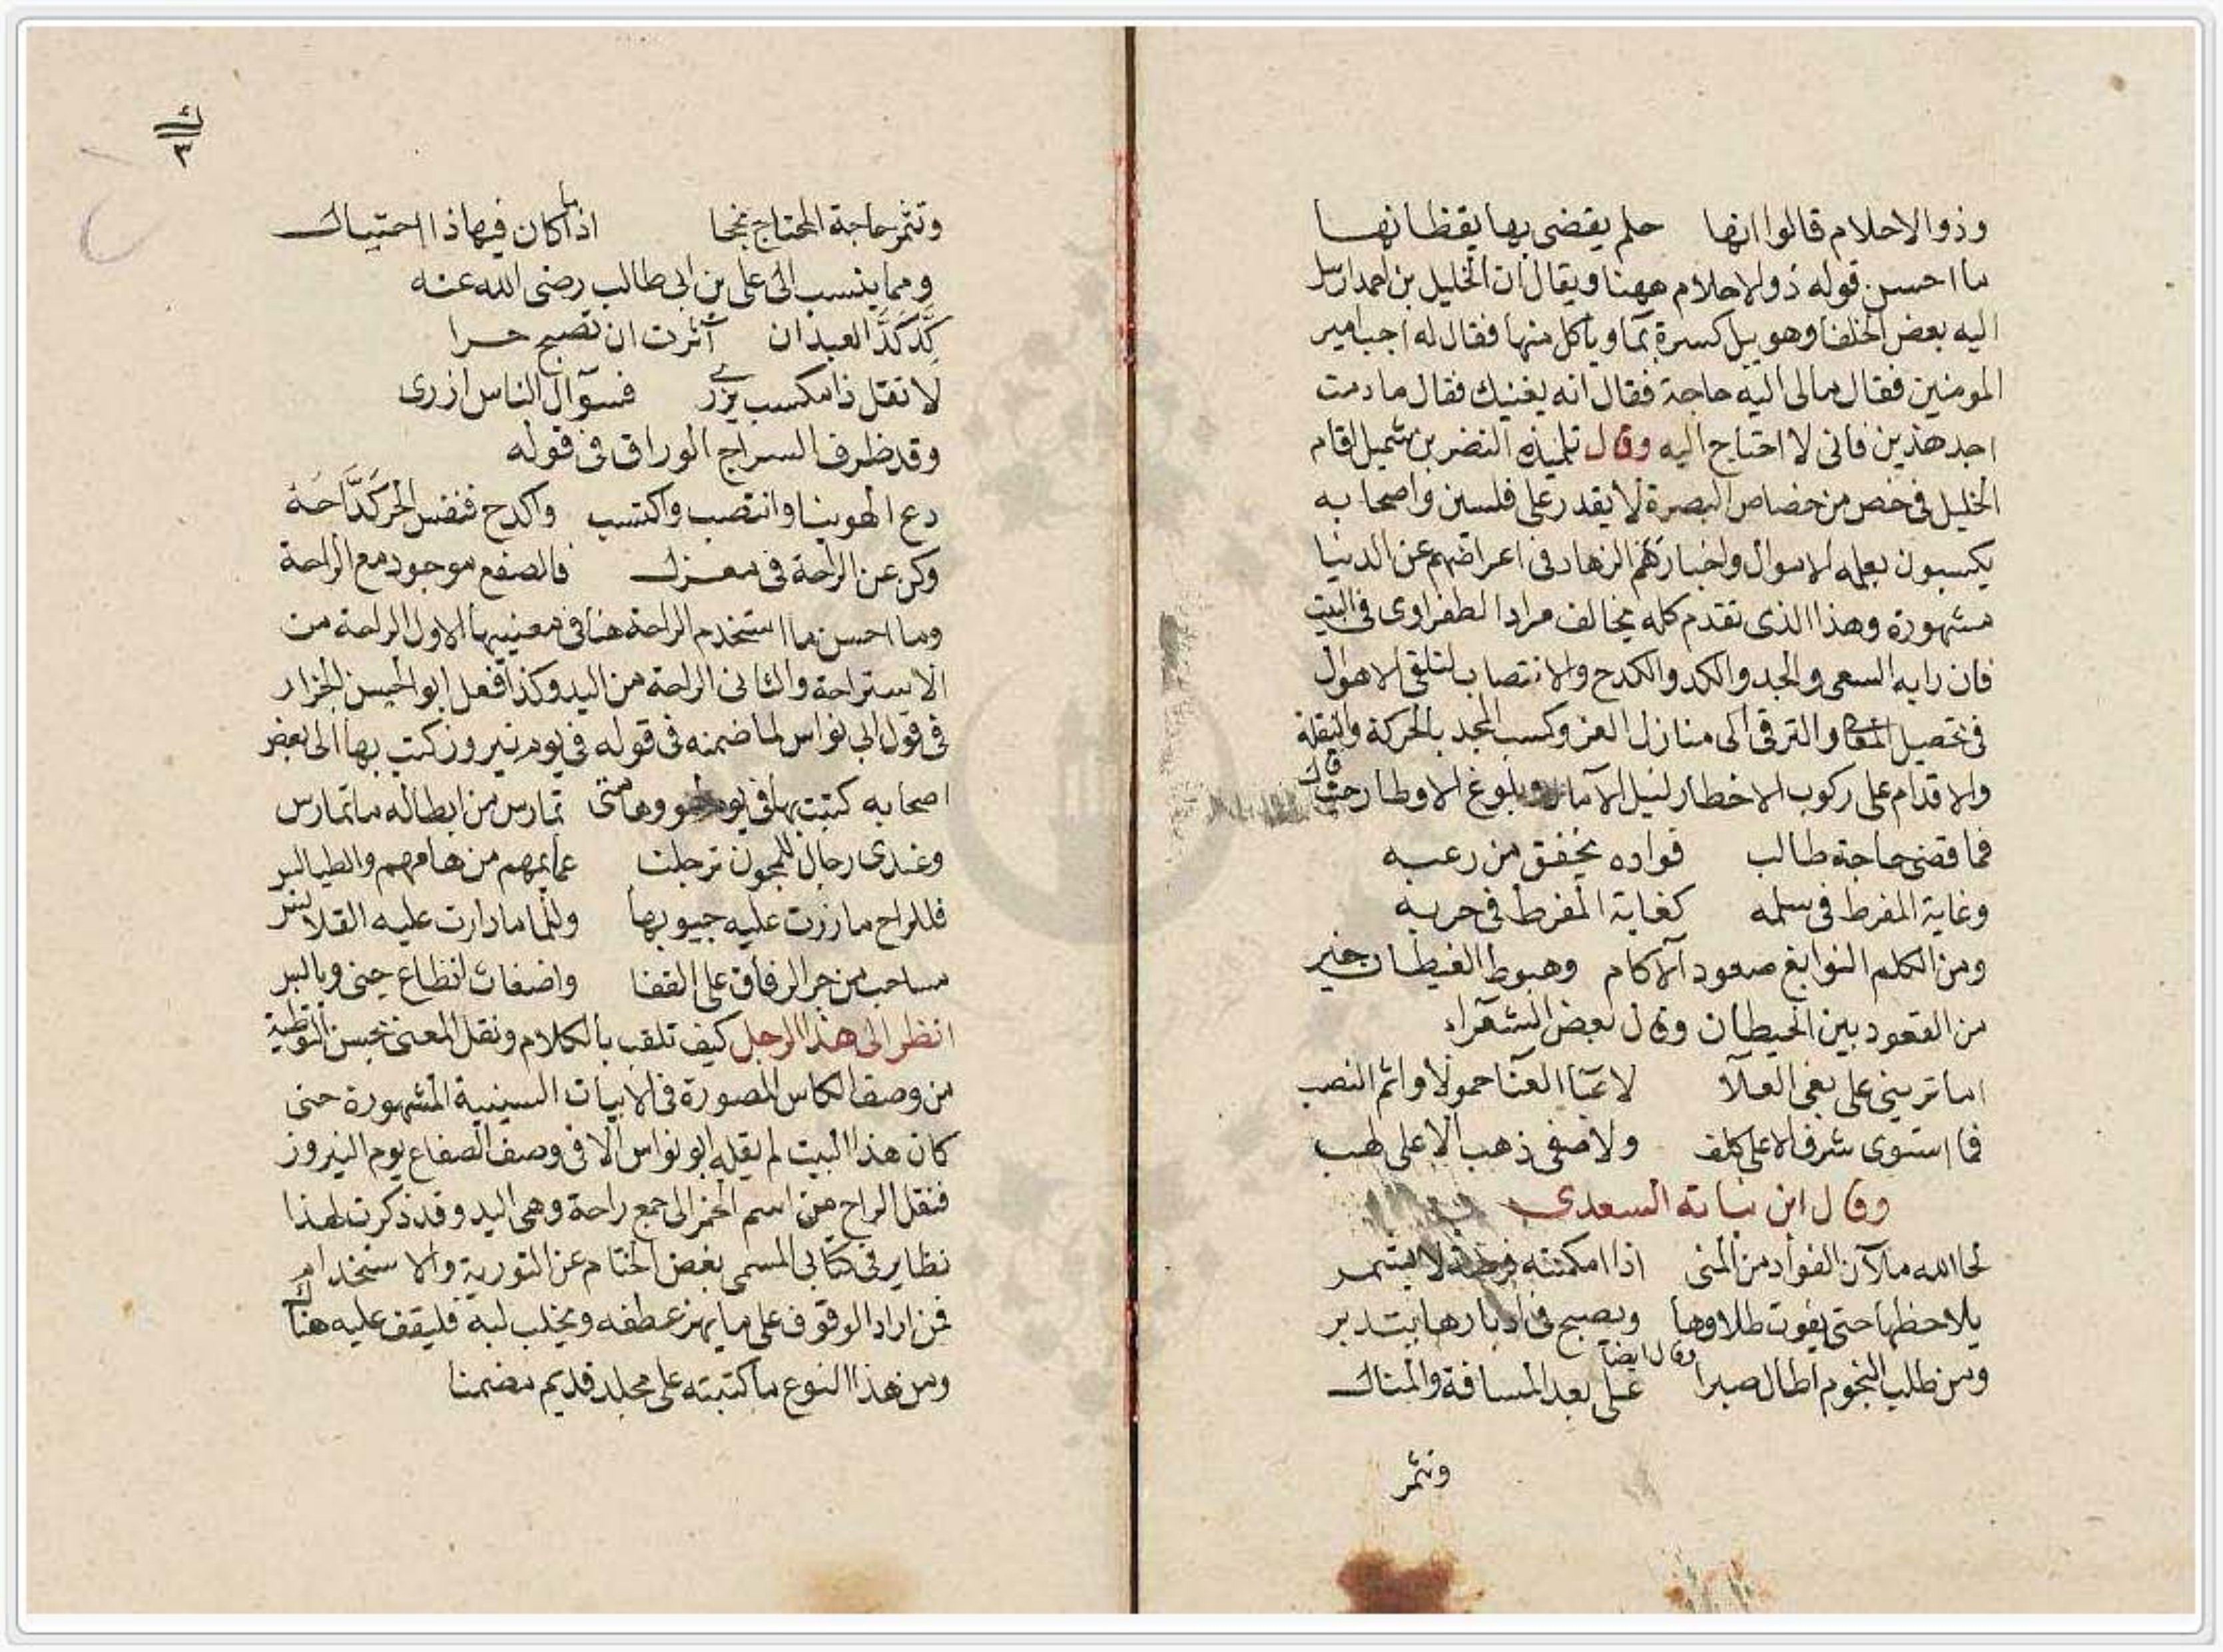 وذوالاحلام قالوا انها حلم يقضى بها يقظانها
ما احسن قوله ذوالاحلام ههنا ويقال ان الخليل بن احمد ارسل
اليه بعض الخلفا وهو يبل كسرة بما وياكل منها فقال له اجب امير
المومنين فقال مالى اليه حاجة فقال انه يغنيك فقال ما دمت
اجد هذين فانى لا احتاج اليه وقال تلميذه النضر بن شميل اقام
الخليل فى خص من خصاص البصرة لا يقدر على فلسين واصحابه
يكسبون بعلمه الاموال واخبار هم الزهاد فى اعراضهم عن الدنيا
مشهورة وهذا الذى تقدم كله يخالف مراد الطغراوى فى البيت
فان رايه السعى والجد والكد والكدح والانتصاب لتلقى الاهوال
فى تحصيل المعالى والترقى الى منازل العز وكسب المجد بالحركة والنقلة
والاقدام على ركوب الاخطار لنيل الآمال وبلوغ الاوطار حيث قال
فما قضى حاجة طالب فواده يخفق من رعبه
وغاية المفرط فى سلمه كغاية المفرط فى حربه
ومن الكلم النوابغ صعود الآكام وهبوط الغيطان خير
من القعود بين الحيطان وقال بعض الشعراء
اما تريني على بغى العلآ لاعبآ العنا حمولا وائم النصب
فما استوى شرف الا على كلف ولا صفى ذهب الا على لهب
وقال ابن نباتة السعدى
لحا الله ملآن الفواد من المنى اذا امكنته فرصة لا يشمر
يلاحظها حتى يفوت طلاوها ويصبح فى ادبارها يتدبر
وقال ايضا
ومن طلب النجوم اطال صبرا على بعد المسافة والمنال
وتثمر
ك
٣
وتثمر حاجة المحتاج نجحا اذا ما كان فيها ذا احتيال
ومما ينسب الى على بن ابى طالب رضى الله عنه
كد كد العبد ان آثرت ان تصبح حرا
لا تقل ذا مكسب يزرى فسوآل الناس ازرى
وقد ظرف السراج الوراق فى قوله
دع الهوينا وانتصب واكتسب واكدح فنفس الحر كداحة
وكن عن الراحة فى معزل فالصفع موجود مع الراحة
وما احسن ما استخدم الراحة هنا فى معنييها الاول الراحة من
الاستراحة والثانى الراحة من اليد وكذا فعل ابو الحسين الجزار
فى قول ابى نواس لما ضمنه فى قوله فى يوم نيروز كتب بها الى بعض
اصحابه كتبت بها فى يوم وهامتى تمارس من ابطاله ما تمارس
وعندى رجال للمجون ترجلت عمايمهم من هامهم والطيالس
فللراح ما زرت عليه جيوبها وللما ما دارت عليه القلانس
مساحب من جر الرفاق على القفا واضغاث انطاع جنى ويابس
انظر الى هذا الرجل كيف تلقب بالكلام ونقل المعنى بحسن التوطية
من وصف الكاس المصورة فى الابيات السينية المشهورة حتى
كان هذا البيت لم يقله ابو نواس الا فى وصف الصفاع يوم النيروز
فنقل الراح من اسم الخمر الى جمع راحة وهى اليد وقد ذكرت لهذا
نظاير فى كتابى المسمى بفض الختام عن التورية والاستخدام
فمن اراد الوقوف على ما يهز عطفه ويخلب لبه فليقف عليه هناك
ومن هذا النوع ما كتبته على مجلد قديم مضمنا